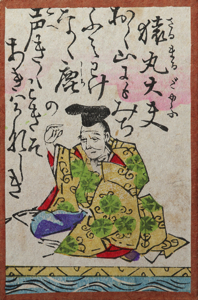 猿丸大夫
さるまるだゆふ
おく山にもみち
ふみわけ
なく鹿の
声きくときそ
あきはかなしき